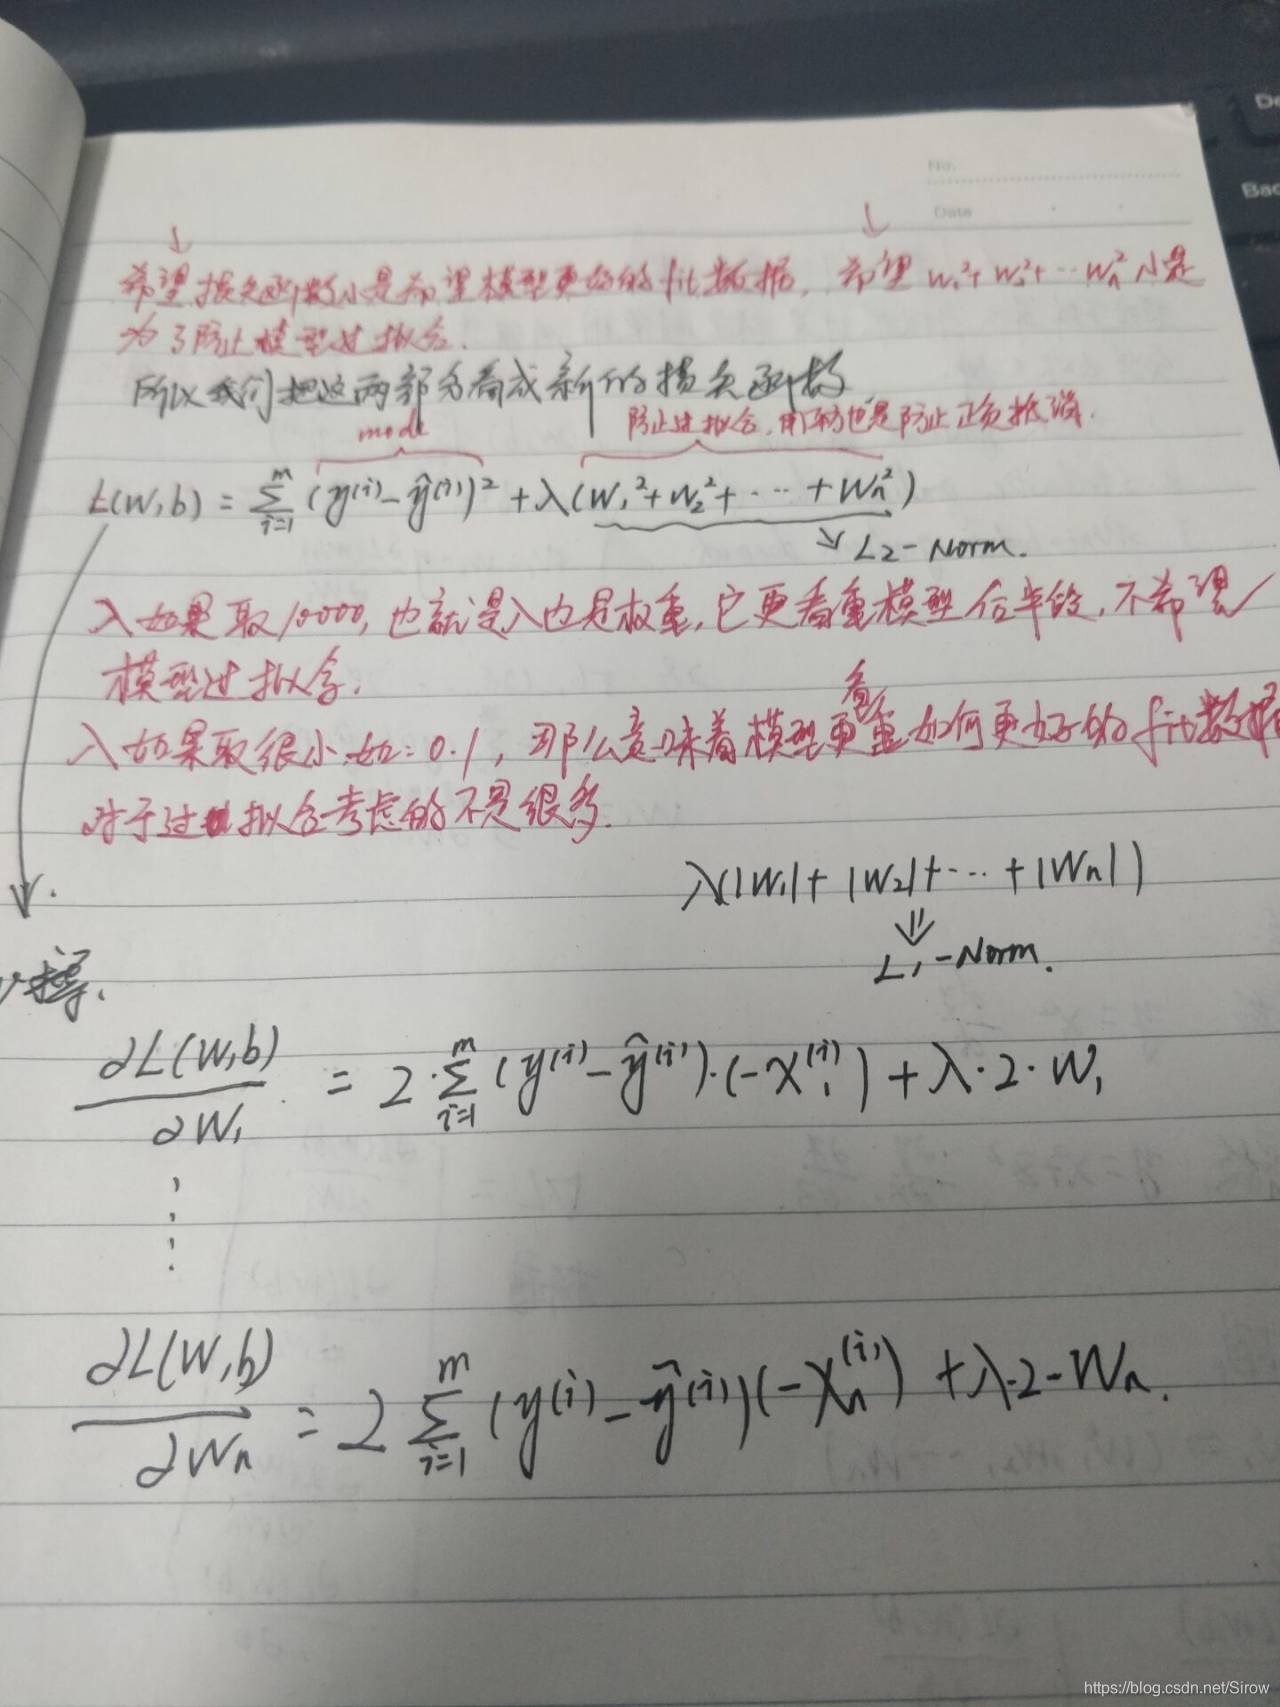 No.
Date
希望损失函数小是希望模型更好的fit数据，希望 w₁²+w₂²+…wₙ²小是
为了防止模型过拟合.
所以我们把这两部分看成新的损失函数
防止过拟合，用平方也是防止正负抵消.
L(W,b) = Σᵢ₌₁ᵐ (y⁽ⁱ⁾-ŷ⁽ⁱ⁾)² + λ(W₁²+W₂²+…+Wₙ²)
↘ L2-Norm.
入如果取10000, 也就是入也是权重, 它更看重模型, 不希望
模型过拟合.
入如果取很小.如:0.1, 那么意味着模型更看重如何更好的fit数据
对于过拟合考虑的不是很多.
λ(|W₁|+|W₂|+…+|Wₙ|)
⇓
L₁-Norm.
求导.
∂L(W,b)/∂W₁ = 2·Σᵢ₌₁ᵐ(y⁽ⁱ⁾-ŷ⁽ⁱ⁾)·(-x₁⁽ⁱ⁾)+λ·2·W₁
⋮
∂L(W,b)/∂Wₙ = 2 Σᵢ₌₁ᵐ(y⁽ⁱ⁾-ŷ⁽ⁱ⁾)(-xₙ⁽ⁱ⁾)+λ·2·Wₙ.
https://blog.csdn.net/Sirow